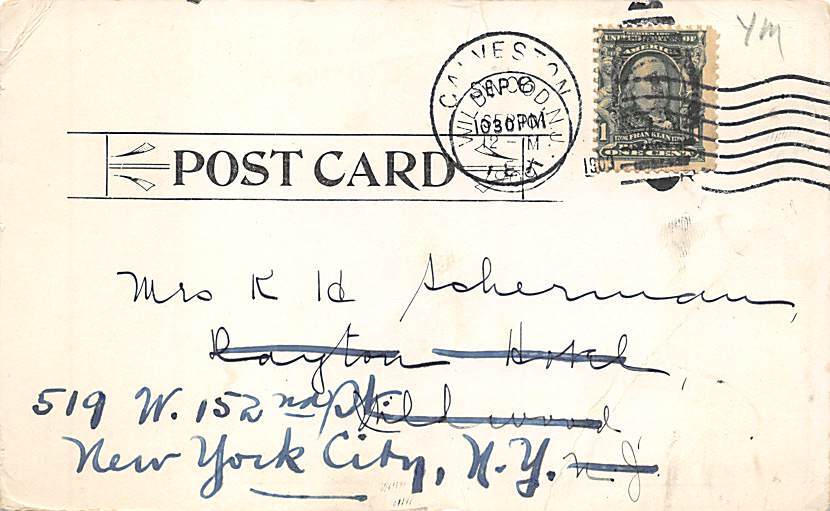 YM
SERIES 1902
UNITED STATES OF
AMERICA
1
FRANKLIN
ONE CENT
GALVESTON
SEP 6
1030 PM
TEX
WILDWOOD, N.J.
12 - M
190
POST CARD
Mrs K H Scherman,
Dayton Hotel,
Wildwood
N.J.
519 W. 152nd St.
New York City, N.Y.